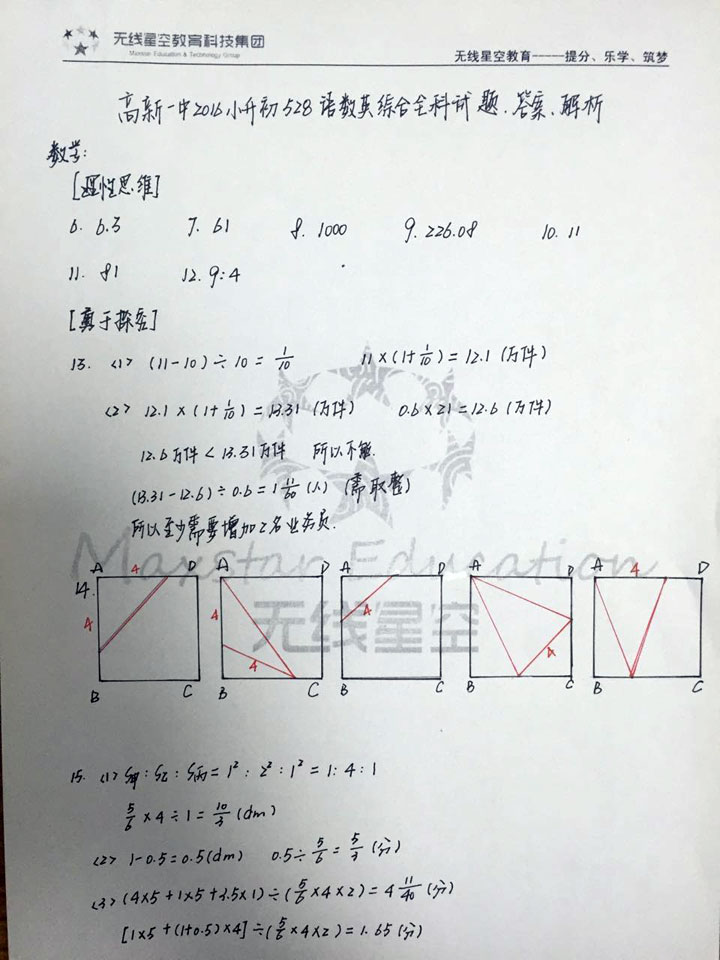 无线星空教育科技集团
Maxstar Education & Technology Group
无线星空教育-----提分、乐学、筑梦
高新一中2016小升初528语数英综合全科试题、答案、解析
数学:
[理性思维]
6. 6.3 7. 61 8. 1000 9. 226.08 10. 11
11. 81 12. 9:4
[勇于探究]
13. <1> (11-10)÷10=1/10 11×(1+1/10)=12.1(万件)
<2> 12.1×(1+1/10)=13.31(万件) 0.6×21=12.6(万件)
12.6万件<13.31万件 所以不能.
(13.31-12.6)÷0.6=1 11/60(人) (需取整)
所以至少需要增加2名业务员.
Maxstar Education
无线星空
14.
A 4 D 4 B C
A D 4 4 B C
A D 4 B C
A D 4 B C
A 4 D B C
15. <1> S甲:S乙:S丙=1²:2²:1²=1:4:1
5/6×4÷1=10/3(dm)
<2> 1-0.5=0.5(dm) 0.5÷5/6=3/5(分)
<3> (4×5+1×5+3.5×1)÷(5/6×4×2)=4 11/40(分)
[1×5+(1+0.5)×4]÷(5/6×4×2)=1.65(分)